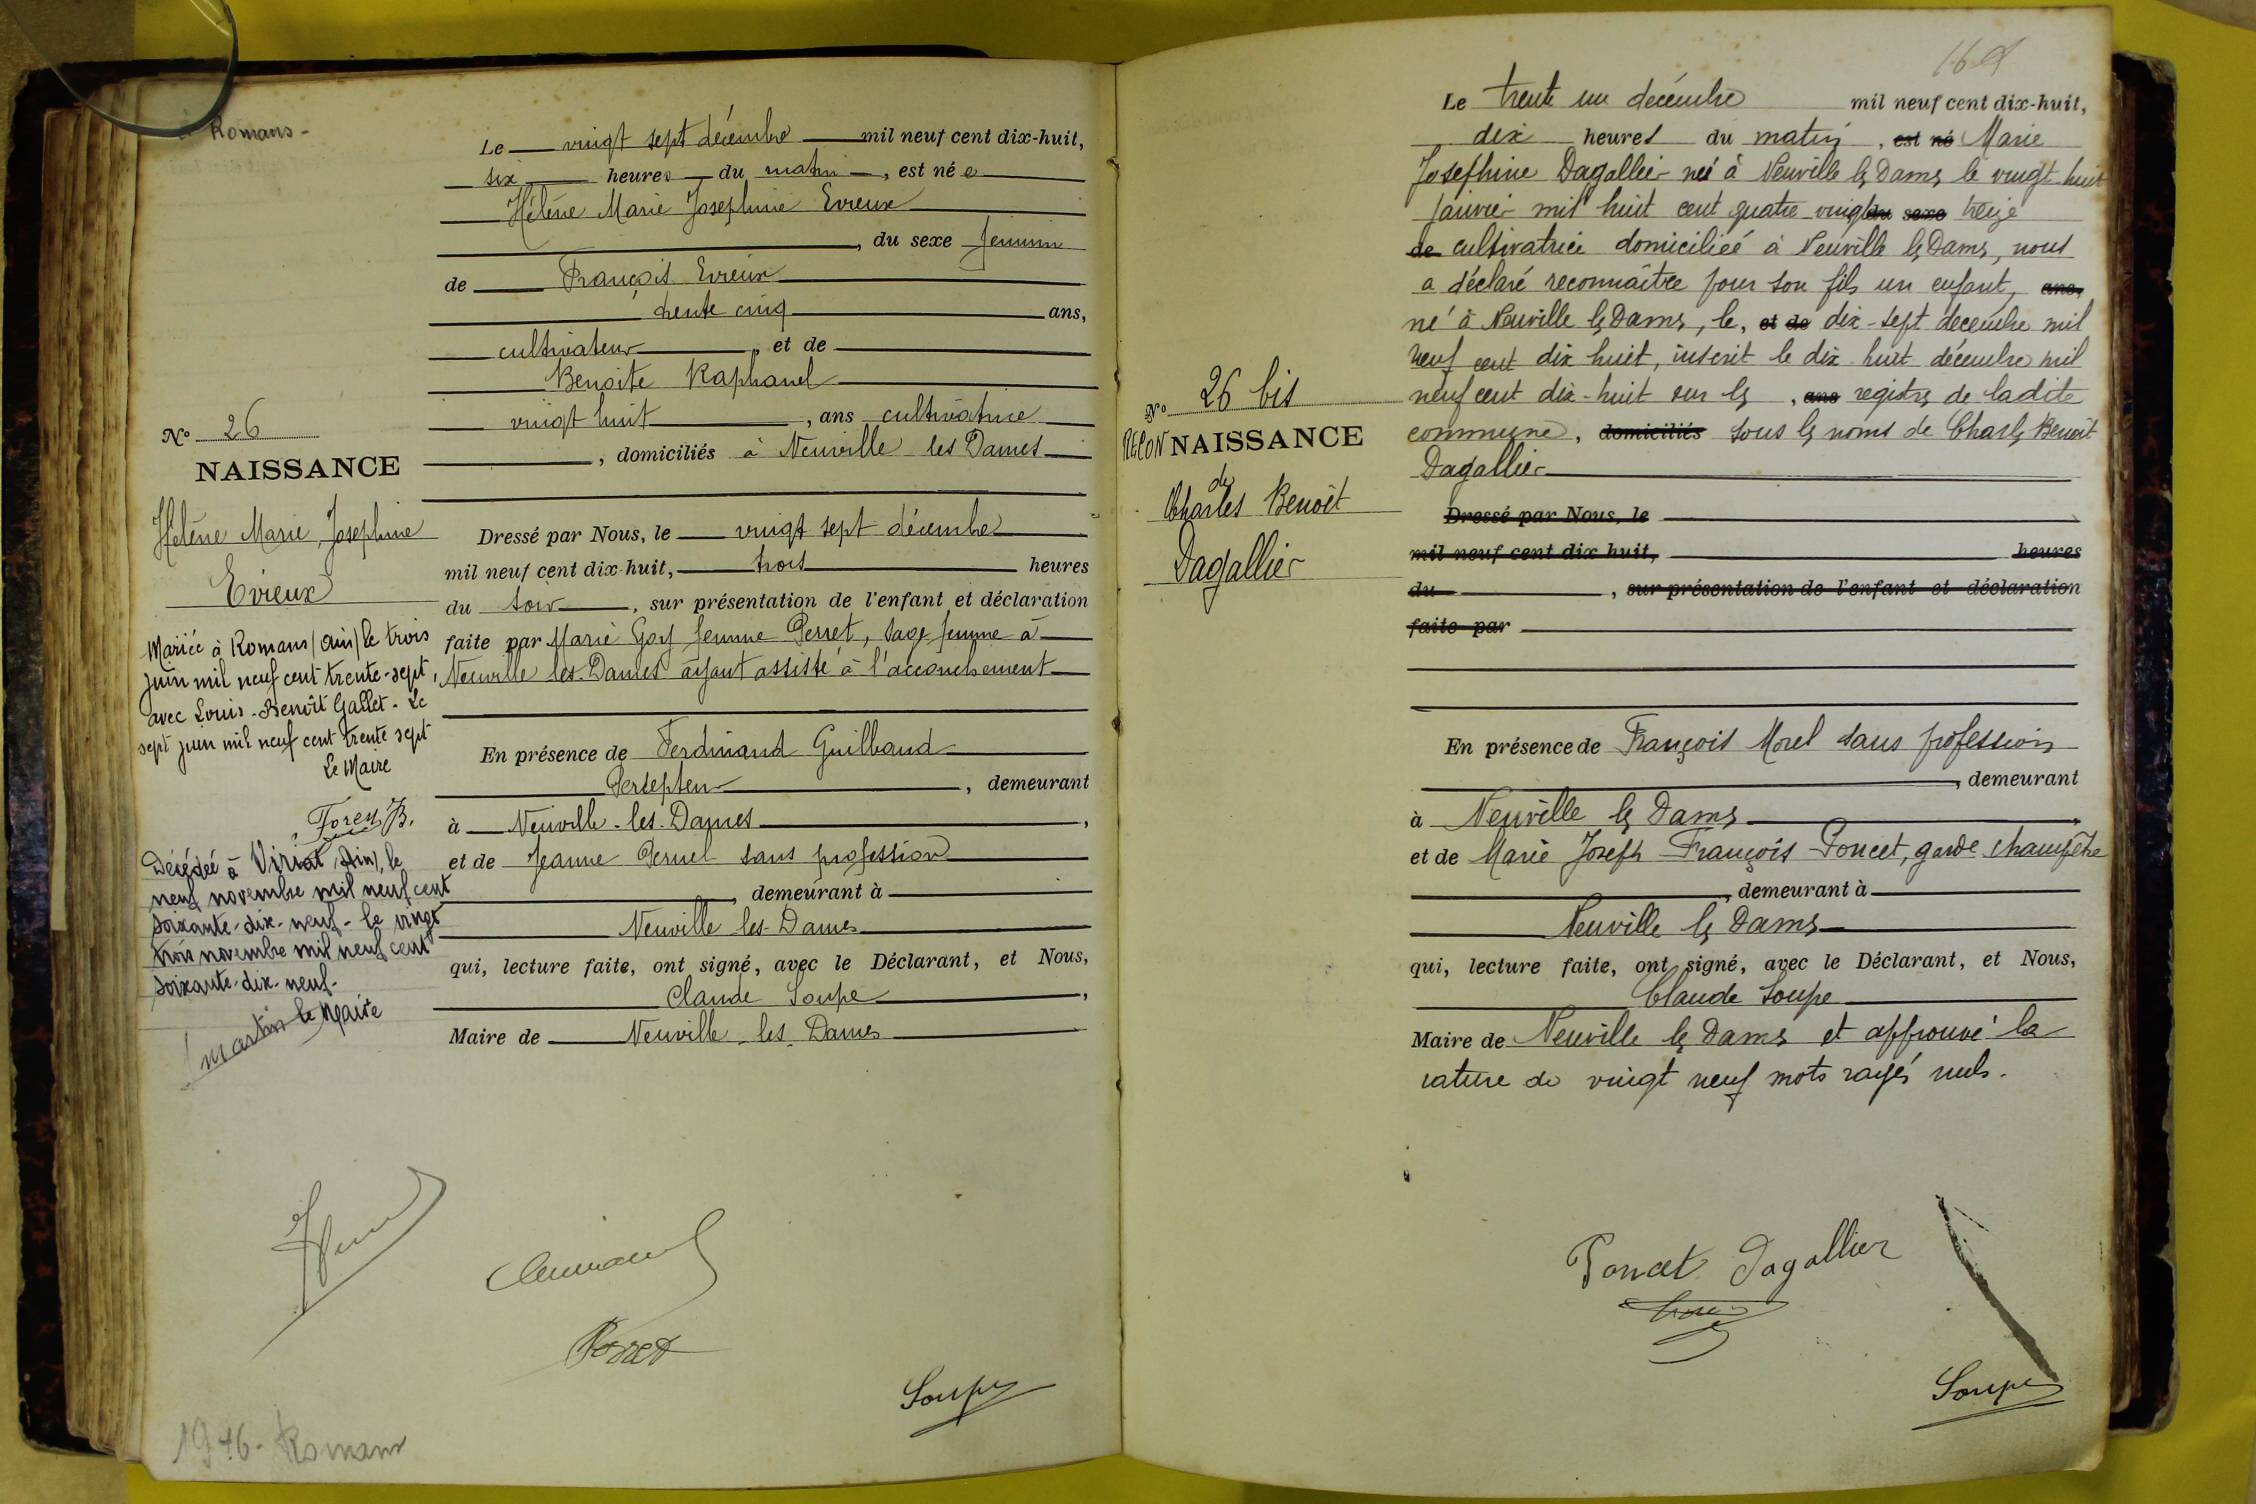 à Romans -
Le vingt sept décembre mil neuf cent dix-huit,
six heures du matin, est née
Hélène Marie Josephine Evieux
, du sexe feminin
de François Evieux
trente cinq ans,
cultivateur, et de
Benoite Raphanel
vingt huit, ans cultivatrice
, domiciliés à Neuville les Dames
N° 26
NAISSANCE
Hélène Marie Josephine
Evieux
Mariée à Romans (Ain) le trois
juin mil neuf cent trente-sept,
avec Louis-Benoît Gallet - Le
sept juin mil neuf cent trente sept
Le Maire
Forey B.
Décédée à Viriat (Ain), le
neuf novembre mil neuf cent
soixante-dix-neuf - le vingt
trois novembre mil neuf cent
soixante-dix-neuf-
le Maire
Martin
Dressé par Nous, le vingt sept décembre
mil neuf cent dix-huit, trois heures
du soir, sur présentation de l'enfant et déclaration
faite par Marie Goy femme Perret, sage femme à
Neuville les-Dames ayant assisté à l'accouchement
En présence de Ferdinand
Persepteur, demeurant
à Neuville-les-Dames,
et de Jeanne sans profession
, demeurant à
Neuville les-Dames
qui, lecture faite, ont signé, avec le Déclarant, et Nous,
Claude Soupe,
Maire de Neuville-les-Dames
Perret
Soupe
Romans
164
Le trente un décembre mil neuf cent dix-huit,
dix heures du matin, est né Marie
Josephine Dagallier née à Neuville les Dames le vingt-huit
janvier mil huit cent quatre-vingt du sexe treize
de cultivatrice domiciliée à Neuville les Dames, nous
a déclaré reconnaître pour son fils un enfant, ans,
né à Neuville les Dames, le, et de dix-sept décembre mil
neuf cent dix huit, inscrit le dix-huit décembre mil
neuf cent dix-huit sur les, ans registres de ladite
commune, domiciliés sous les noms de Charles Benoît
Dagallier
N° 26 bis
RECONNAISSANCE
de
Charles Benoît
Dagallier
Dressé par Nous, le
mil neuf cent dix huit, heures
du, sur présentation de l'enfant et déclaration
faite par
En présence de François Morel sans profession
, demeurant
à Neuville les Dames,
et de Marie Joseph François Poncet, garde champêtre
, demeurant à
Neuville les Dames
qui, lecture faite, ont signé, avec le Déclarant, et Nous,
Claude Soupe
Maire de Neuville les Dames et approuvé la
rature de vingt neuf mots rayés nuls.
Poncet Dagallier
Soupe